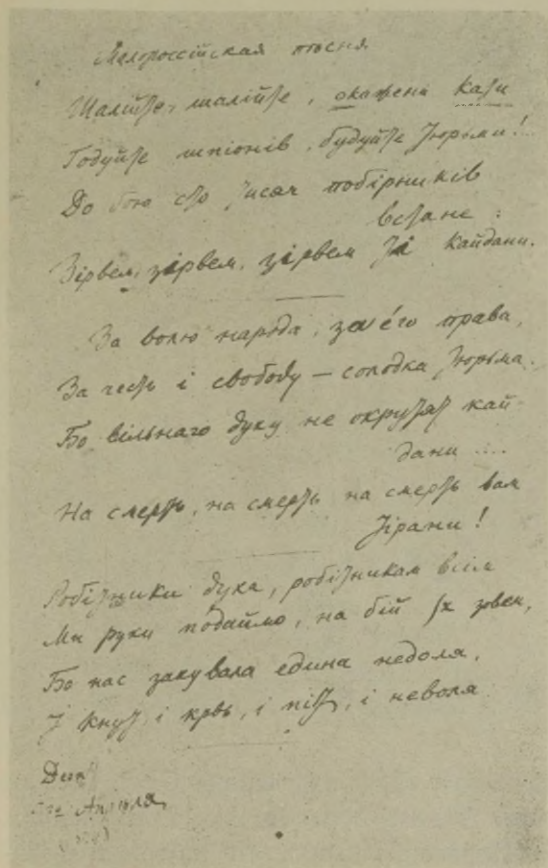 Малороссійская пѣсня
Шалийте, шалийте, скажені кати
Годуйте шпіонів, будуйте тюрьми!
До бою сто тисяч побірників
встане:
Зірвем, зірвем, зірвем ті кайдани.
За волю народа, за его права,
За честь і свободу — солодка тюрьма.
Бо вільнаго духу не окрутят кай-
дани ....
На смерть, на смерть, на смерть вам
Тірани!
Робітники духа, робітникам всім
Ми руки подаймо, на бій їх зовем,
Бо нас закувала едина недоля,
І кнут, і кровь, і піт, і неволя.